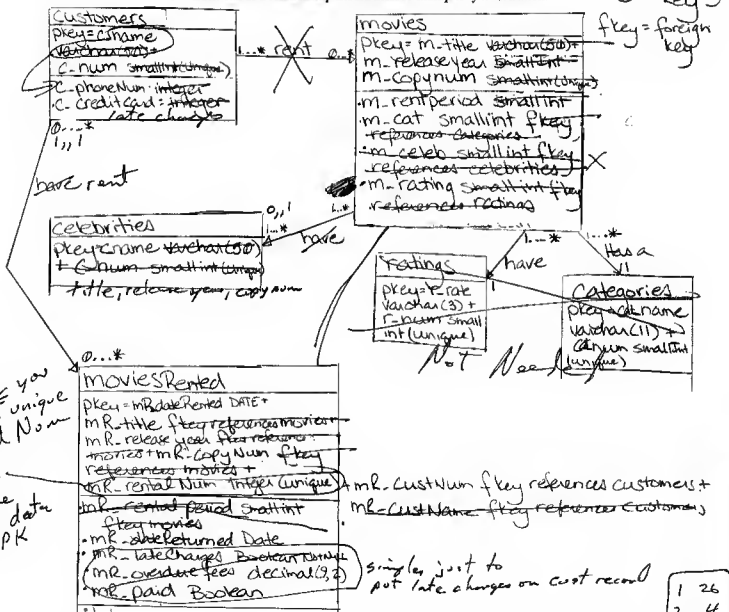 key
fkey = foreign
key
customers
pkey=csname
varchar(50)+
c-num smallint(unique)
c-phoneNum integer
c-creditcard integer
late charges
1...* rent 0...*
movies
pkey= m-title varchar(50)+
m-releaseyear smallint
m-copynum smallint(unique)
m-rentperiod smallint
m-cat smallint fkey
references categories
m-celeb smallint fkey
references celebrities
m-rating smallint fkey
references ratings
0...*
1,,1
have rent
celebrities
pkey=cname varchar(50)
+ c-num smallint(unique)
title, release year, copy num
0,,1
1...*
1...*
have
1...*
have
1
1...*
Has a
1
ratings
pkey=r-rate
varchar(3) +
r-num small
int(unique)
Categories
pkey=catname
varchar(11) +
catnum smallint
(unique)
Not Needed
0...*
moviesRented
pkey=mRdateRented DATE+
mR-title fkey references movies+
mR-release year fkey references
movies+mR-copyNum fkey
references movies +
mR-rentalNum Integer(unique)
+ mR-custNum fkey references customers+
mR-custName fkey references Customers
mR-rental period smallint
fkey movies
mR-dateReturned Date
mR-lateCharges Boolean NotNull
mR-overdue fees decimal(9,2)
mR-paid Boolean
you
unique
Num
data
PK
simpler just to
put late charges on cust record
1 26
2 4